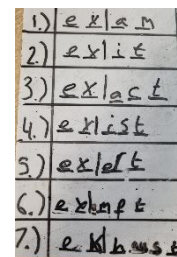 1.) ex|am
2.) ex|it
3.) ex|act
4.) ex|ist
5.) ex|ert
6.) ex|empt
7.) ex|haust